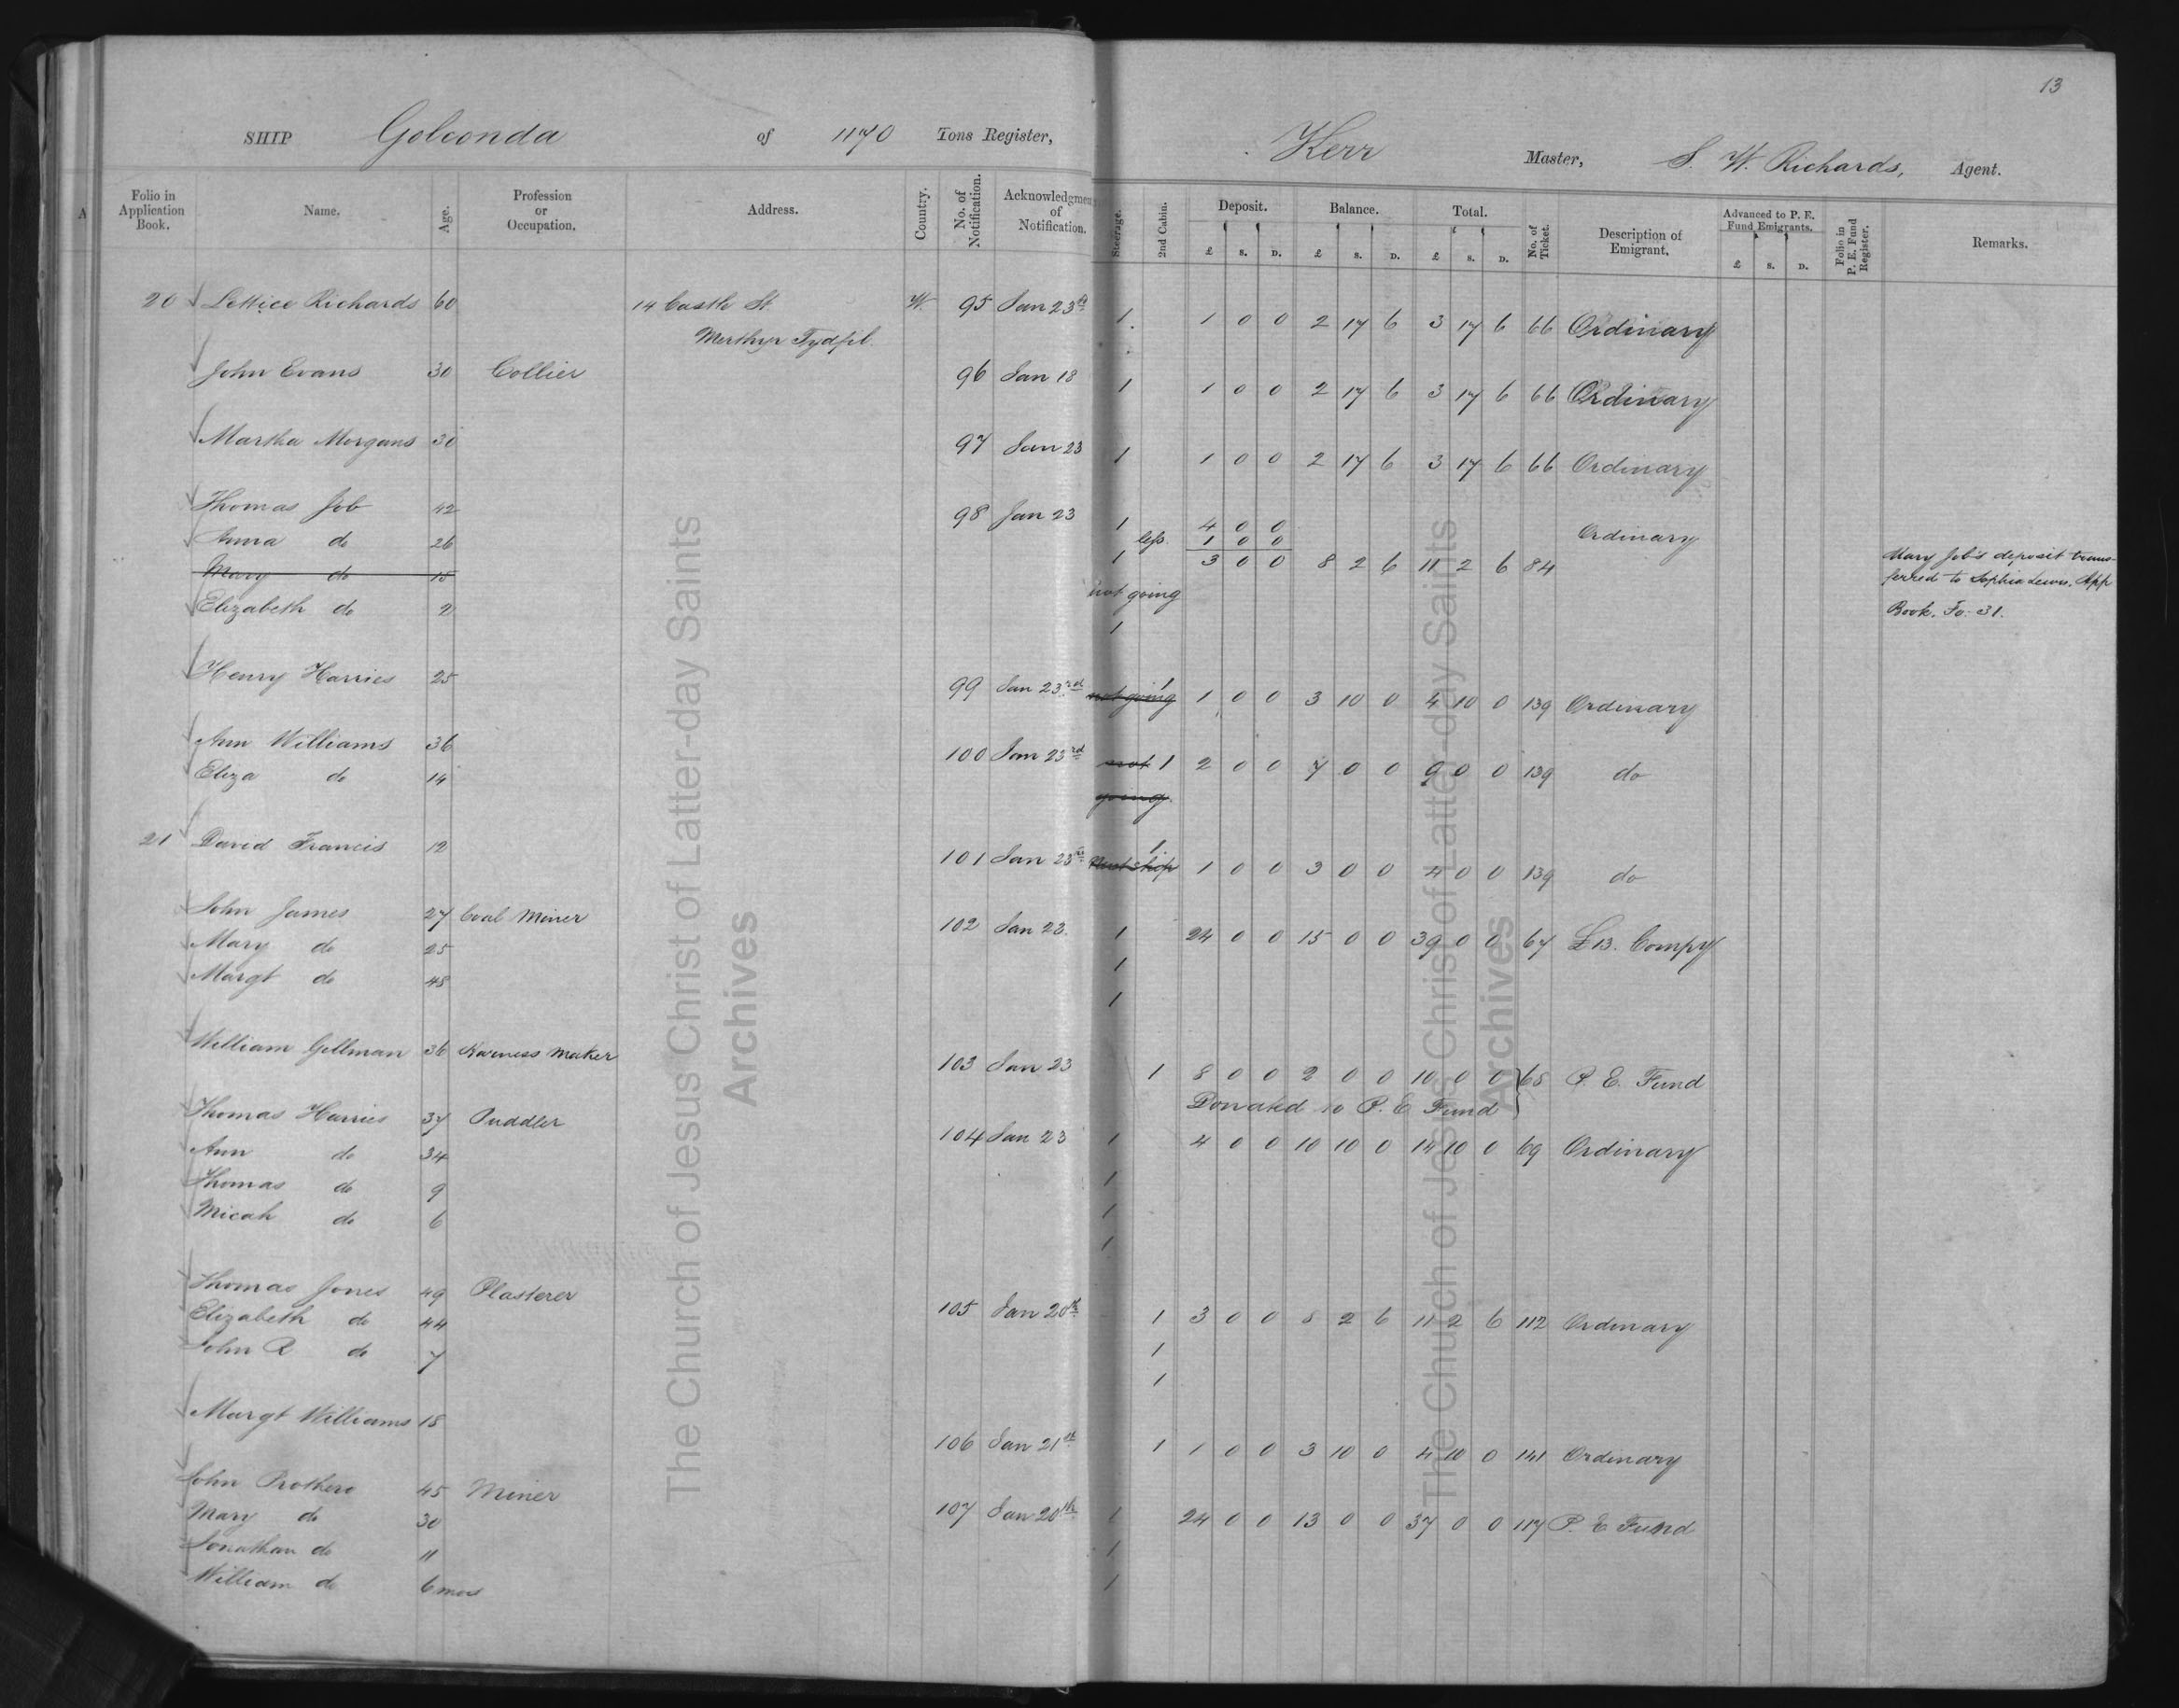 13
SHIP Golconda of 1170 Tons Register, Kerr Master, S. W. Richards, Agent.
A
Folio in Application Book. Name. Age. Profession or Occupation. Address. Country. No. of Notification. Acknowledgment of Notification. Steerage. 2nd Cabin. Deposit. £ S. D. Balance. £ S. D. Total. £ S. D. No. of Ticket. Description of Emigrant. Advanced to P. E. Fund Emigrants. £ S. D. Folio in P. E. Fund Register. Remarks.
20 Lettice Richards 60 14 Castle St W. 95 Jan 23rd 1 1 0 0 2 17 6 3 17 6 66 Ordinary
Merthyr Tydfil.
John Evans 30 Collier 96 Jan 18 1 1 0 0 2 17 6 3 17 6 66 Ordinary
Martha Morgans 30 97 Jan 23 1 1 0 0 2 17 6 3 17 6 66 Ordinary
Thomas Job 42 98 Jan 23 1 4 0 0 Ordinary
Anna do 26 less 1 0 0
1 3 0 0 8 2 6 11 2 6 84 Mary Job's deposit trans-
Mary do 15 not going ferred to Sophia Lewis. App
Elizabeth do 2 1 Book. Fo. 31.
Henry Harries 25 99 Jan 23rd not going 1 1 0 0 3 10 0 4 10 0 139 Ordinary
Ann Williams 36 100 Jan 23rd not 1 2 0 0 7 0 0 9 0 0 139 do
Eliza do 14 going
21 David Francis 12 101 Jan 23rd Next ship 1 1 0 0 3 0 0 4 0 0 139 do
John James 27 Coal Miner 102 Jan 23 1 24 0 0 15 0 0 39 0 0 67 £13. Compy
Mary do 25 1
Margt do 48 1
William Gillman 36 Harness Maker 103 Jan 23 1 8 0 0 2 0 0 10 0 0 68 P. E. Fund
Donated to P. E Fund
Thomas Harries 37 Puddler 104 Jan 23 1 4 0 0 10 10 0 14 10 0 69 Ordinary
Ann do 34 1
Thomas do 9 1
Micah do 6 1
Thomas Jones 49 Plasterer 105 Jan 20th 1 3 0 0 8 2 6 11 2 6 112 Ordinary
Elizabeth do 44 1
John R do 7 1
Margt Williams 18 106 Jan 21st 1 1 0 0 3 10 0 4 10 0 141 Ordinary
John Prothero 45 Miner 107 Jan 20th 1 24 0 0 13 0 0 37 0 0 117 P. E Fund
Mary do 30 1
Jonathan do 11 1
William do 6 mos
The Church of Jesus Christ of Latter-day Saints
Archives
The Church of Jesus Christ of Latter-day Saints
Archives